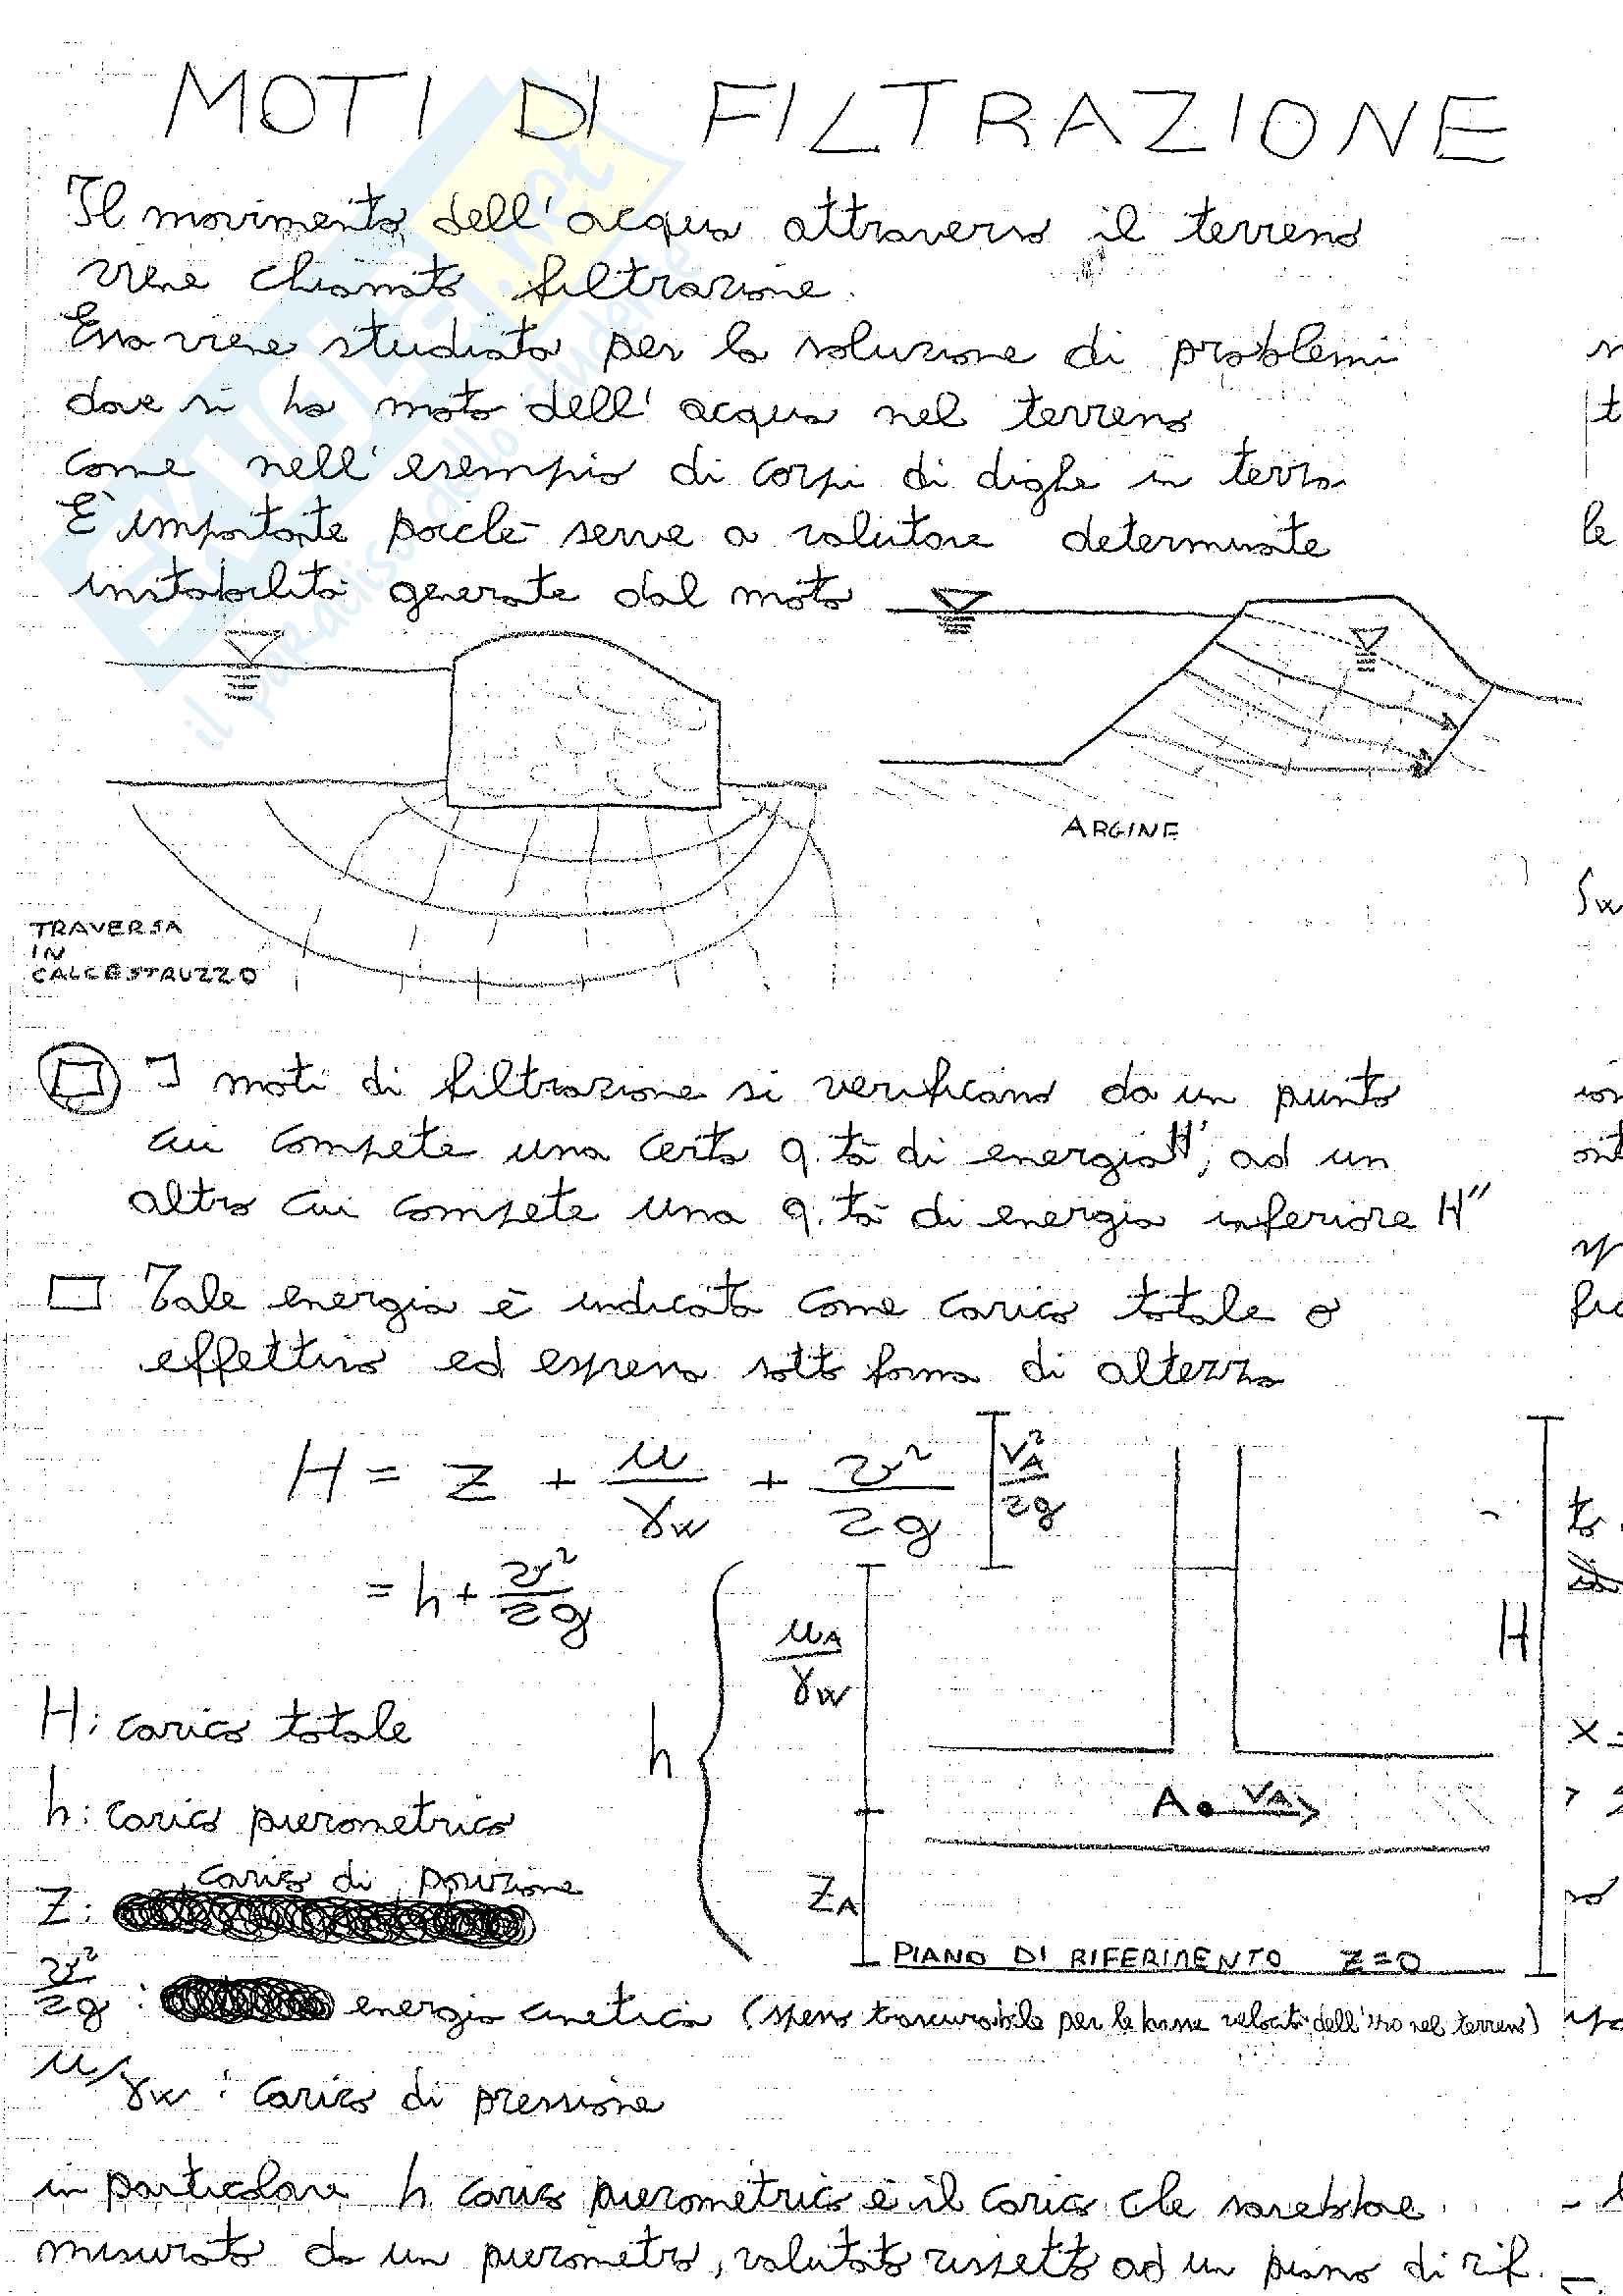 MOTI DI FILTRAZIONE
Il movimento dell'acqua attraverso il terreno
viene chiamato filtrazione.
Essa viene studiata per la soluzione di problemi
dove si ha moto dell'acqua nel terreno
come nell'esempio di corpi di dighe in terra
È importante poichè serve a valutare determinate
instabilità generate dal moto
ARGINE
TRAVERSA
IN
CALCESTRUZZO
I moti di filtrazione si verificano da un punto
cui compete una certa q.tà di energia H', ad un
altro cui compete una q.tà di energia inferiore H''
Tale energia è indicata come carico totale o
effettivo ed espressa sotto forma di altezza
H = z + u/γw + v²/2g
VA²/2g
= h + v²/2g
uA/γw
H
h
H: carico totale
h: carico piezometrico
A VA
carico di posizione
Z:
ZA
PIANO DI RIFERIMENTO Z=0
v²/2g : energia cinetica (spesso trascurabile per le basse velocità dell'H2O nel terreno)
u/γw : carico di pressione
in particolare h carico piezometrico è il carico che sarebbe
misurato da un piezometro, valutato rispetto ad un piano di rif.